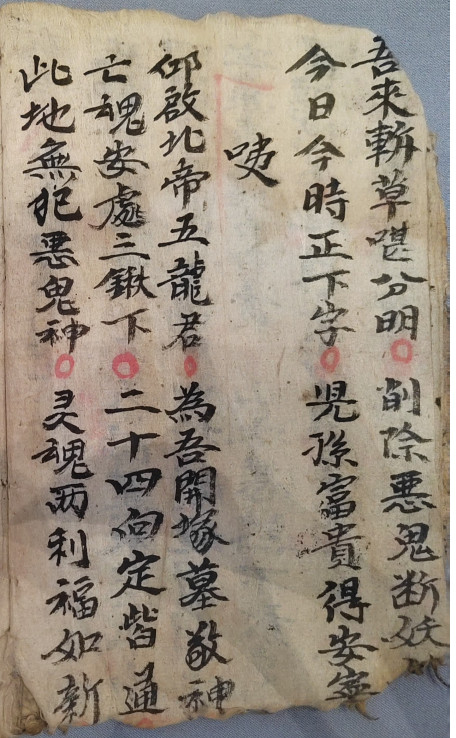 吾來斬草堪分明○削除惡鬼断妖
今日今時正下字○児孫富貴得安寧
咦
仰啟北帝五龍君○為吾開塚墓敬神
亡魂安處三鍬下○二十四向定皆通
此地無犯惡鬼神○灵魂两利福如新